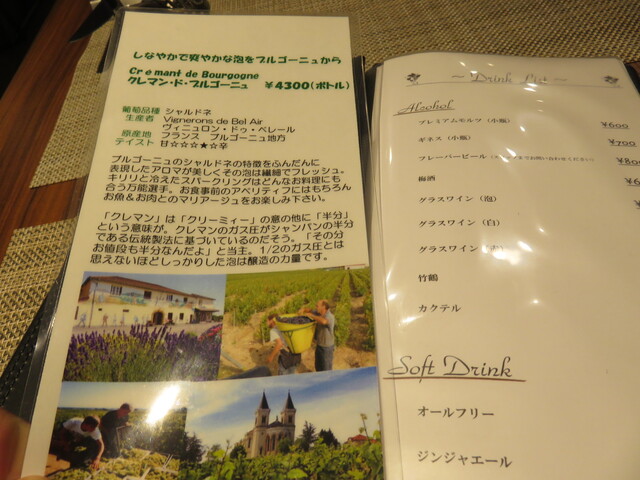 しなやかで爽やかな泡をブルゴーニュから
Crémant de Bourgogne
クレマン・ド・ブルゴーニュ ¥4300(ボトル)
葡萄品種 シャルドネ
生産者 Vignerons de Bel Air
ヴィニュロン・ドゥ・ベレール
原産地 フランス ブルゴーニュ地方
テイスト 甘☆☆☆★☆辛
ブルゴーニュのシャルドネの特徴をふんだんに
表現したアロマが美しくその泡は繊細でフレッシュ。
キリリと冷えたスパークリングはどんなお料理にも
合う万能選手。お食事前のアペリティフにはもちろん
お魚&お肉とのマリアージュをお楽しみ下さい。
「クレマン」は「クリーミィー」の意の他に「半分」
という意味が。クレマンのガス圧がシャンパンの半分
である伝統製法に基づいているのだそう。「その分
お値段も半分なんだよ」と当主。1/2のガス圧とは
思えないほどしっかりした泡は醸造の力量です。
~ Drink List ~
Alcohol
プレミアムモルツ(小瓶) ¥600
ギネス(小瓶) ¥700
フレーバービール
梅酒
グラスワイン(泡)
グラスワイン(白)
グラスワイン
竹鶴
カクテル
Soft Drink
オールフリー
ジンジャエール